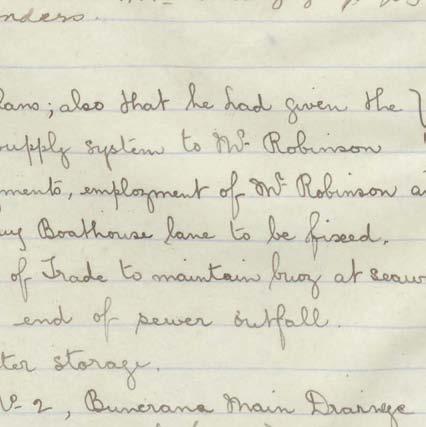 nders.
lans; also that he had given the
supply system to Mr. Robinson
ments, employment of Mr. Robinson a
Boathouse lane to be fixed.
of Trade to maintain buoy at seaw
end of sewer outfall.
ter storage.
No. 2, Buncrana Main Drainage